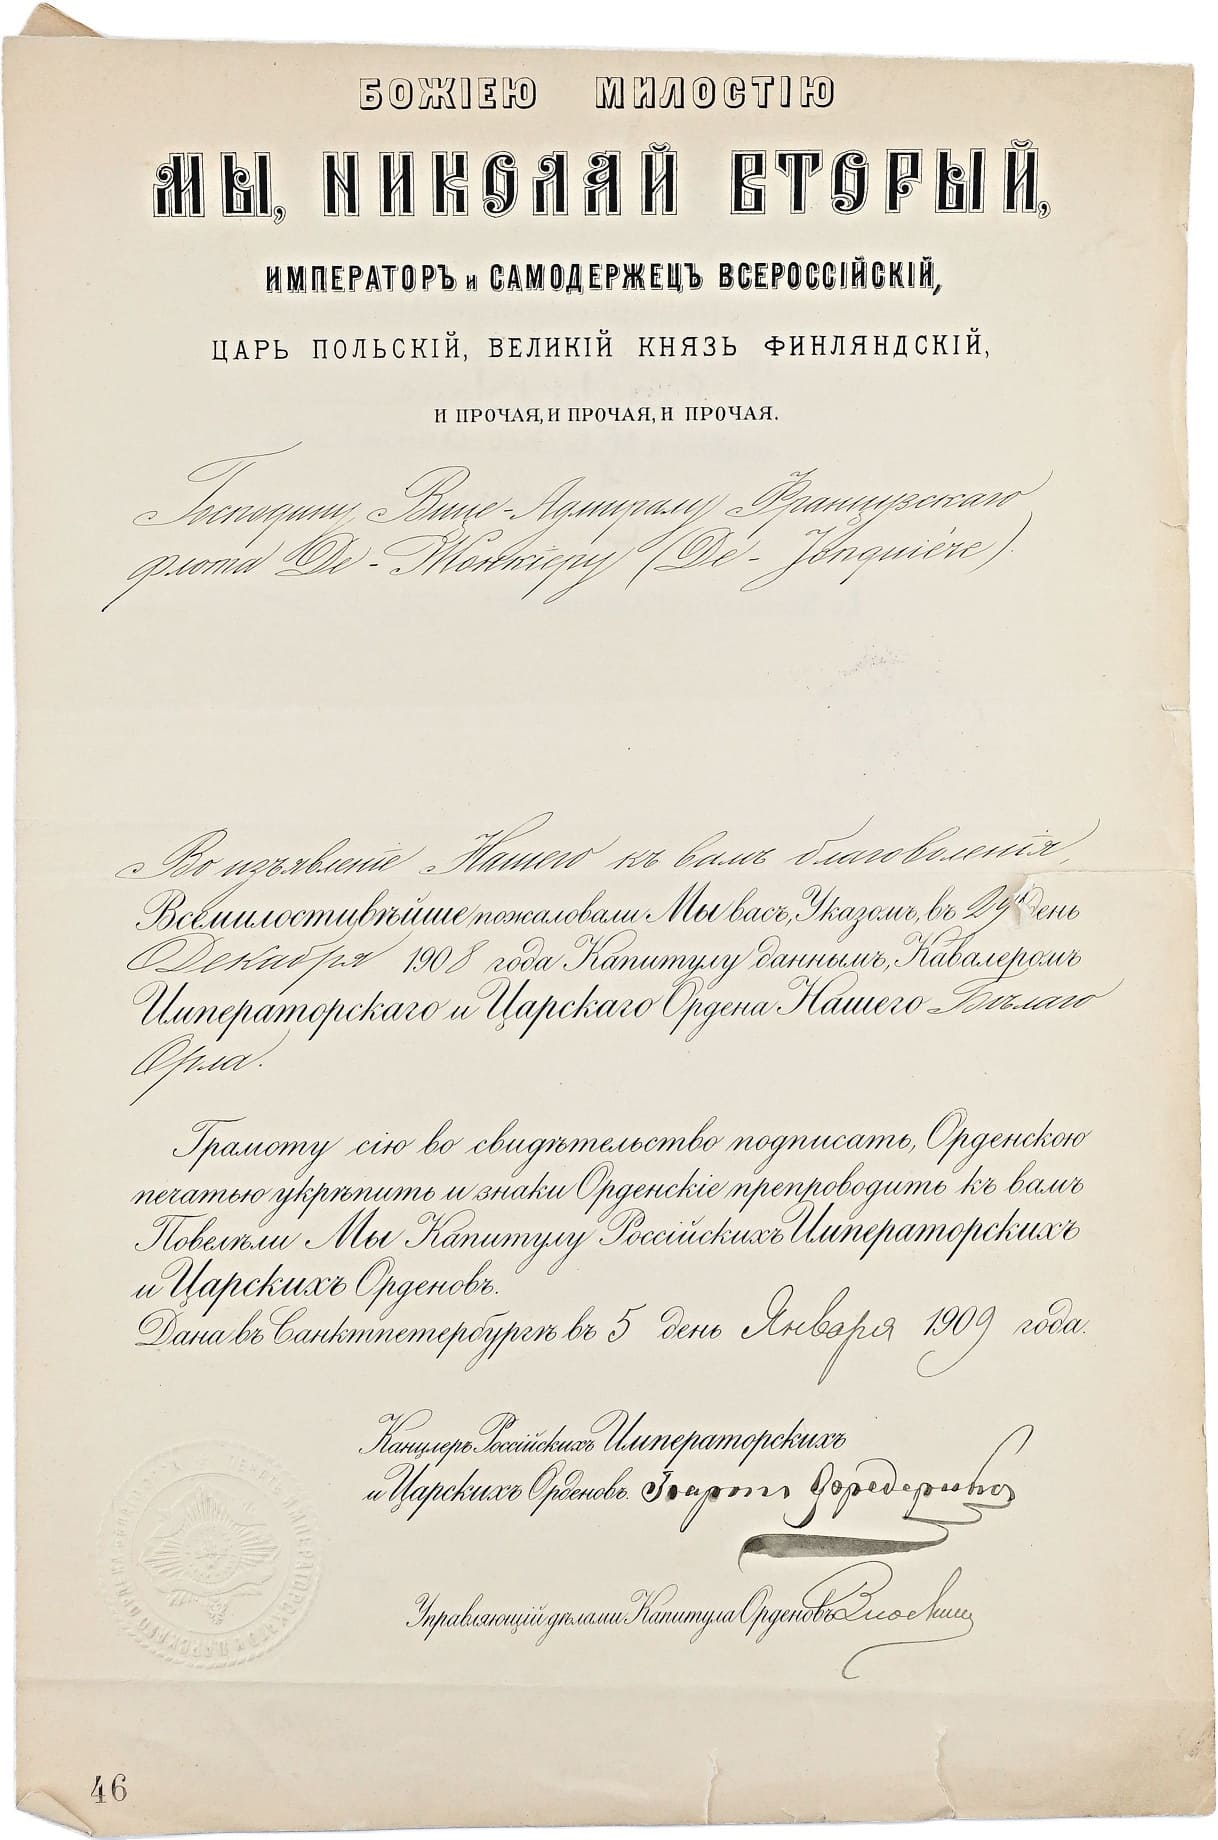 БОЖІЕЮ МИЛОСТІЮ
МЫ, НИКОЛАЙ ВТОРЫЙ,
ИМПЕРАТОРЪ и САМОДЕРЖЕЦЪ ВСЕРОССІЙСКІЙ,
ЦАРЬ ПОЛЬСКІЙ, ВЕЛИКІЙ КНЯЗЬ ФИНЛЯНДСКІЙ,
И ПРОЧАЯ, И ПРОЧАЯ, И ПРОЧАЯ.
Господину Вице-Адмиралу Французскаго
флота Де-Жонкіеру (De-Jonquiére).
Во изъявленіе Нашего къ вамъ благоволенія,
Всемилостивѣйше пожаловали Мы васъ, Указомъ, въ 29й день
Декабря 1908 года Капитулу даннымъ, Кавалеромъ
Императорскаго и Царскаго Ордена Нашего Бѣлаго
Орла.
Грамоту сію во свидѣтельство подписать, Орденскою
печатью укрѣпить и знаки Орденскіе препроводить къ вамъ
Повелѣли Мы Капитулу Россійскихъ Императорскихъ
и Царскихъ Орденовъ.
Дана въ Санктпетербургѣ въ 5 день Января 1909 года.
Канцлеръ Россійскихъ Императорскихъ
и Царскихъ Орденовъ. Баронъ Фредериксъ
Управляющій дѣлами Капитула Орденовъ
46